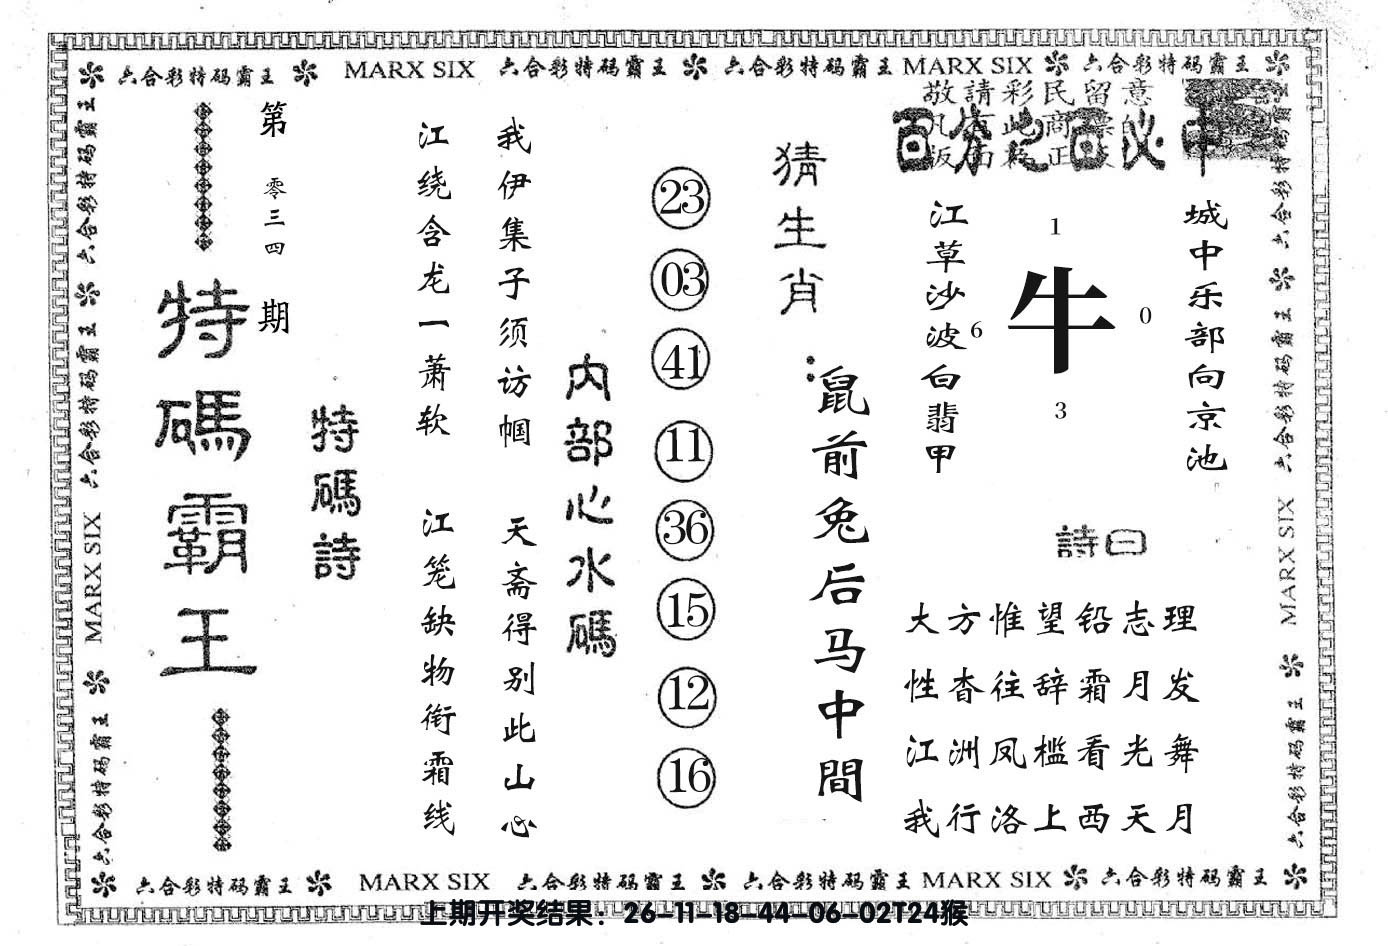 六合彩特码霸王 MARX SIX 六合彩特码霸王 六合彩特码霸王 MARX SIX 六合彩特码霸王
敬請彩民留意
百分之百必中
城中乐部向京池
江草沙波白翡甲
1
6
牛
0
3
詩曰
大方惟望铅志理
性杳往辞霜月发
江洲凤槛看光舞
我行洛上西天月
猜生肖：
鼠前兔后马中間
23
03
41
11
36
15
12
16
内部心水碼
我伊集子须访帼
天斋得别此山心
江绕含龙一萧软
江笼缺物衔霜线
特碼詩
第零三四期
特碼霸王
六合彩特码霸王 六合彩特码霸王 MARX SIX 六合彩特码霸王
六合彩特码霸王 六合彩特码霸王 MARX SIX 六合彩特码霸王
六合彩特码霸王 MARX SIX 六合彩特码霸王 六合彩特码霸王 MARX SIX 六合彩特码霸王
上期开奖结果：26-11-18-44-06-02T24猴